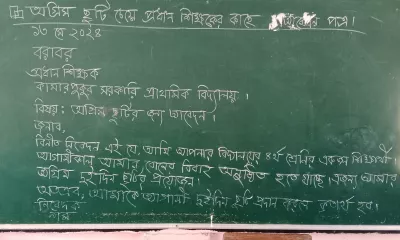 অগ্রিম ছুটি চেয়ে প্রধান শিক্ষকের কাছে আবেদন পত্র।
১৩ মে ২০২৪
বরাবর
প্রধান শিক্ষক
কামারপুকুর সরকারি প্রাথমিক বিদ্যালয়।
বিষয়: অগ্রিম ছুটির জন্য আবেদন।
জনাব,
বিনীত নিবেদন এই যে, আমি আপনার বিদ্যালয়ের ৪র্থ শ্রেণির একজন শিক্ষার্থী।
আগামীকাল আমার বোনের বিবাহ অনুষ্ঠিত হতে যাচ্ছে। এজন্য আমার
অগ্রিম দুইদিন ছুটির প্রয়োজন।
অতএব, আমাকে আগামী দুইদিন ছুটি প্রদান করলে কৃতার্থ হব।
নিবেদক